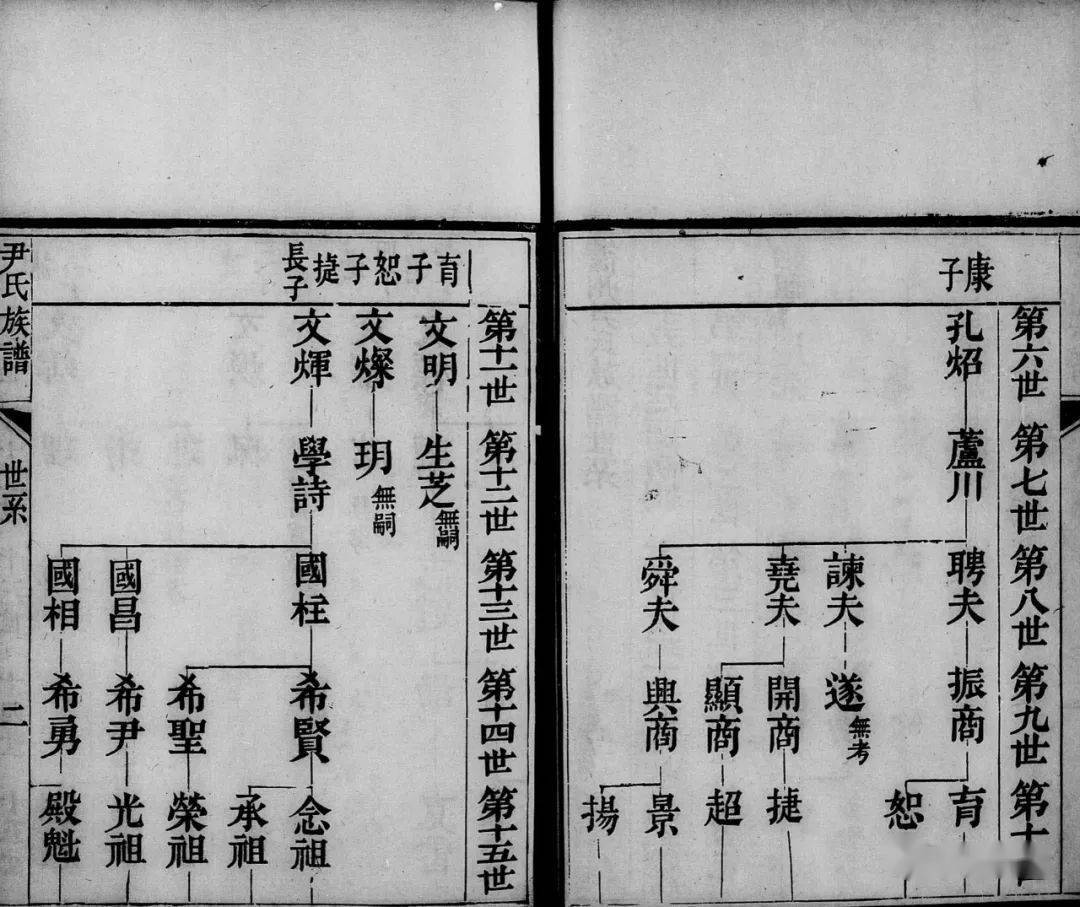 康子
第六世
第七世
第八世
第九世
第十
孔炤
蘆川
聘夫
振商
育
恕
諫夫
遂
無考
堯夫
開商
捷
顯商
超
舜夫
興商
景
揚
育子
恕子
捷長子
第十一世
第十二世
第十三世
第十四世
第十五世
文明
生芝
無嗣
文燦
玥
無嗣
文煇
學詩
國柱
希賢
念祖
承祖
希聖
榮祖
國昌
希尹
光祖
國相
希勇
殿魁
尹氏族譜
世系
二